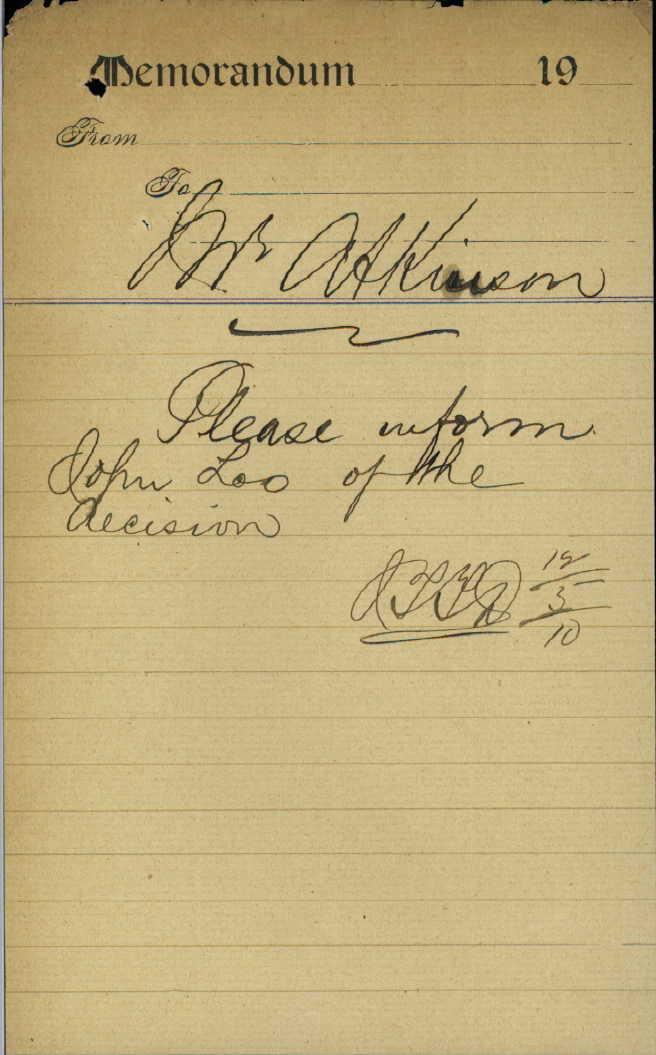 Memorandum 19
From
To
Mr Atkinson
Please inform
John Loo of the
decision
12
3
10